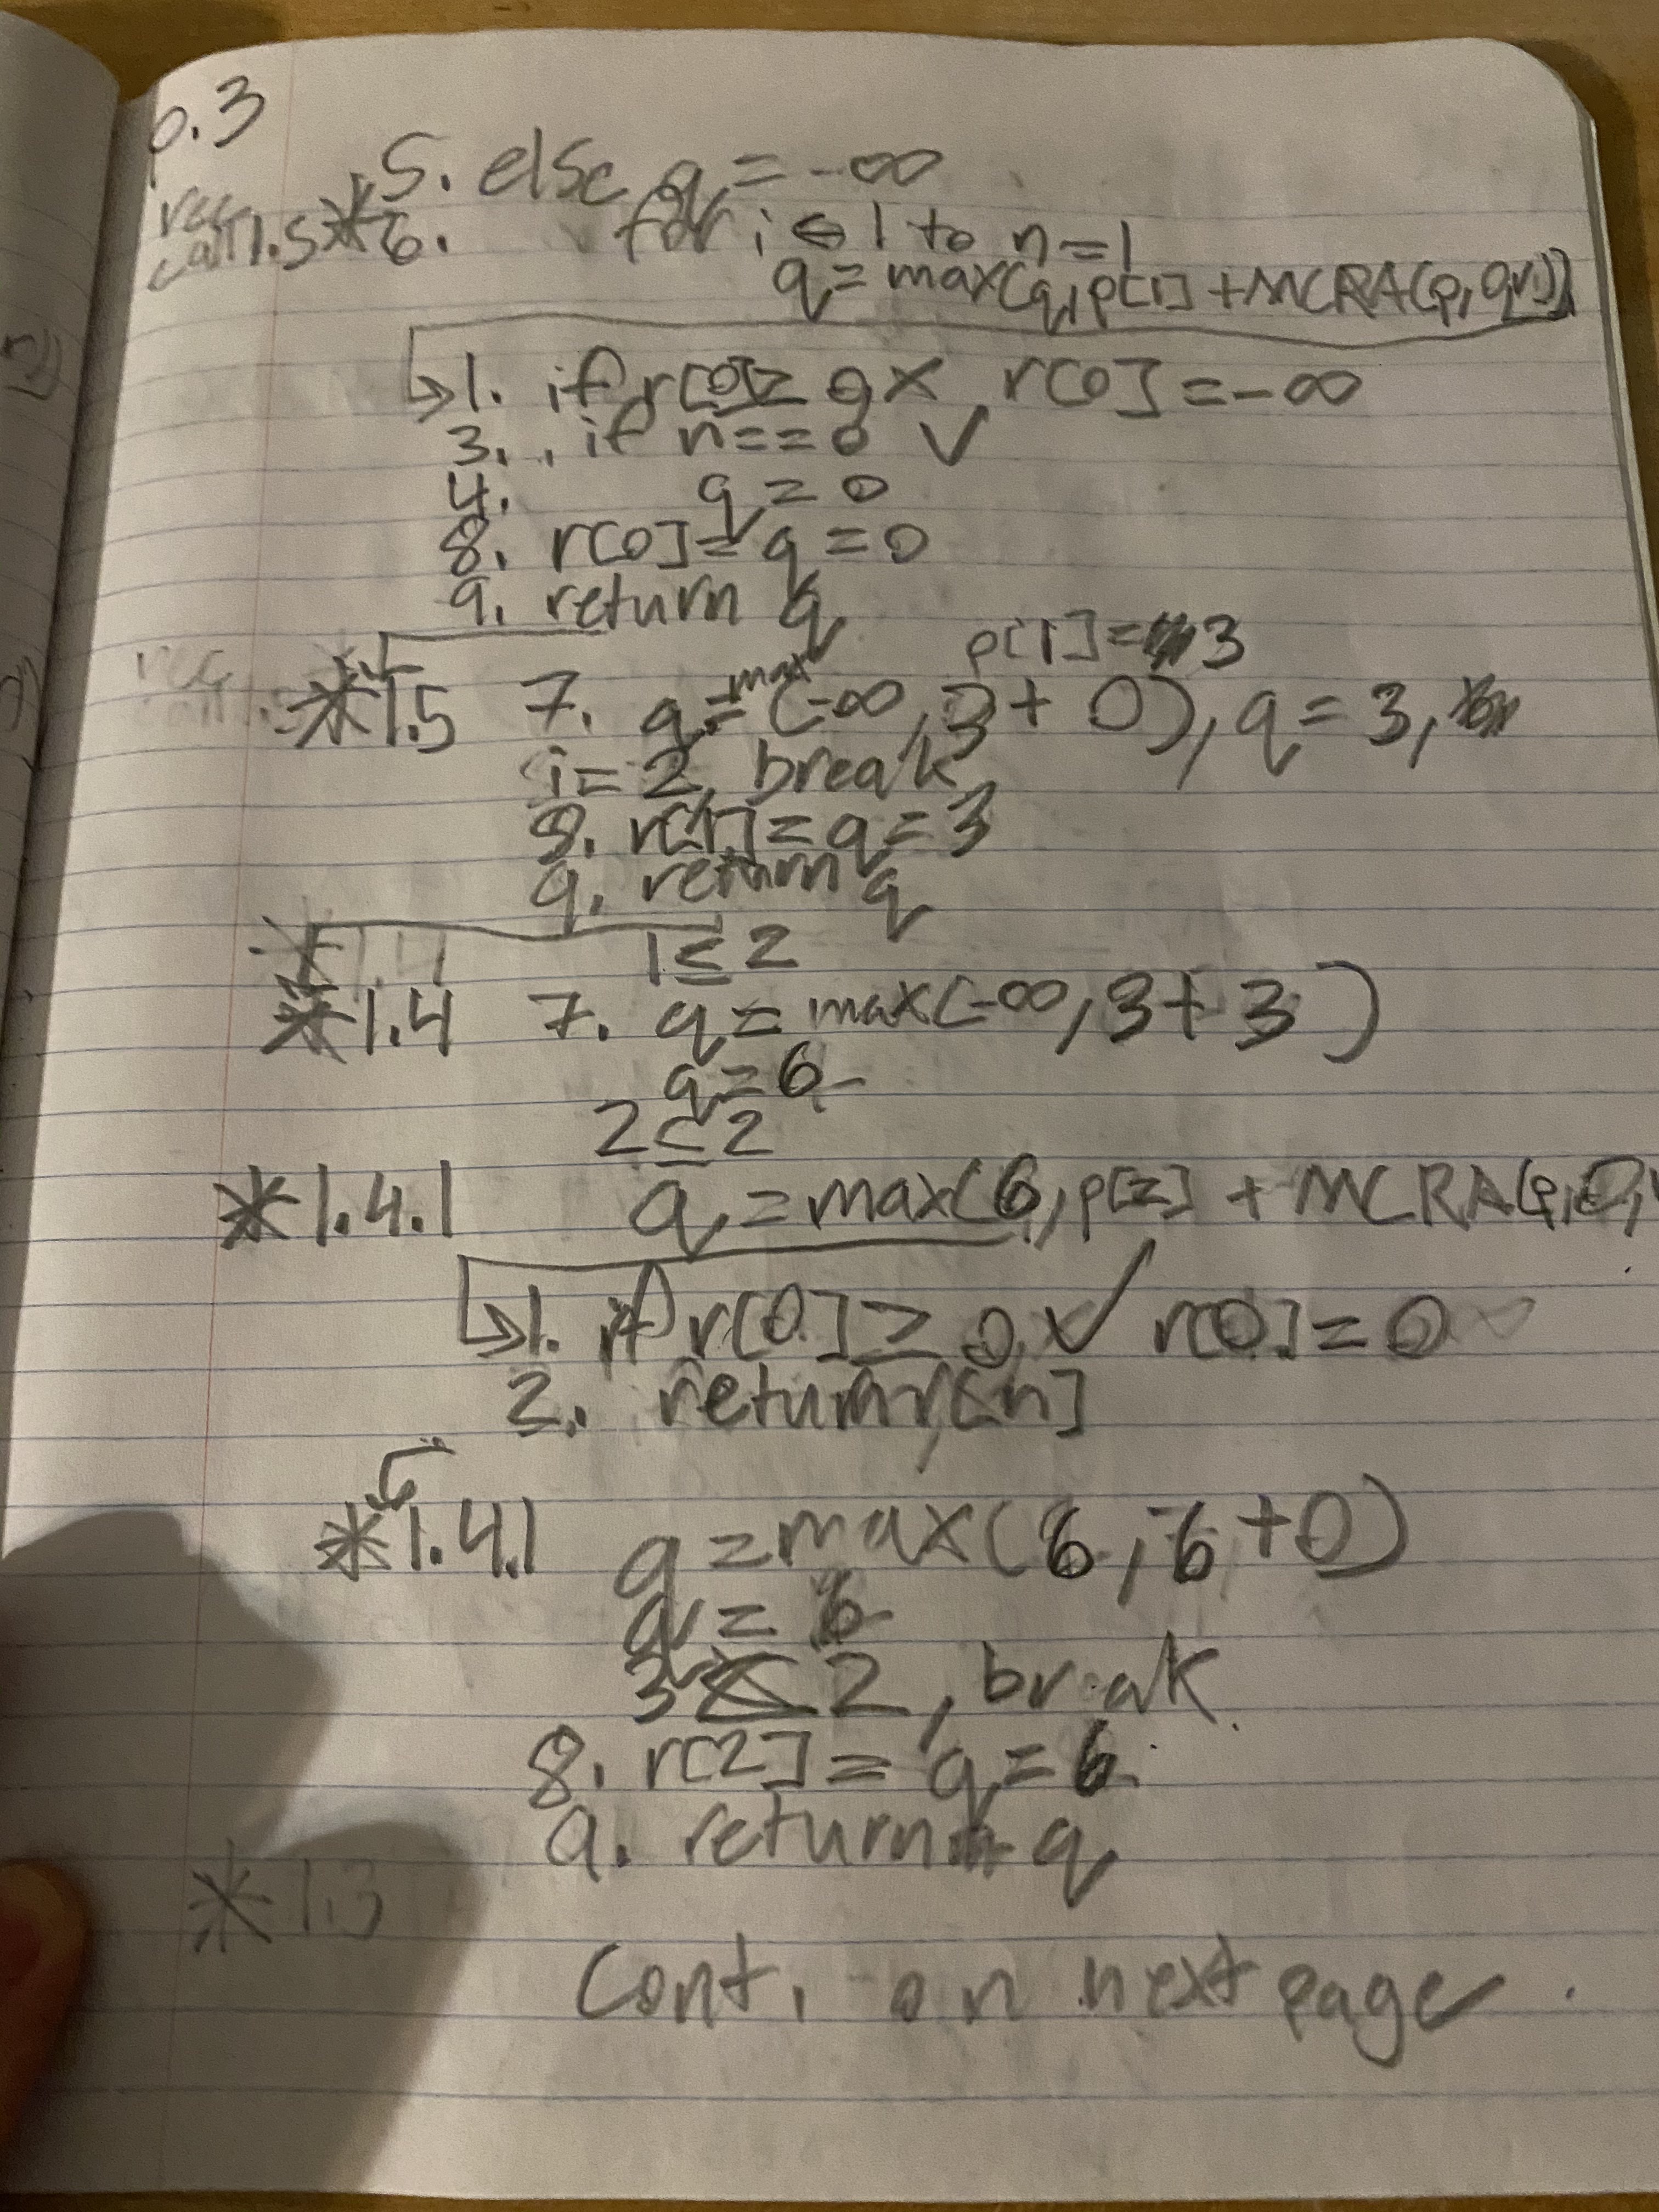 p.3
5. else q = -∞
rec call 1.5 * 6. for i ← 1 to n=1
q = max(q, p[1] + MCRA(p, 0, r))
↳ 1. if r[0] ≥ 0 × r[0] = -∞
3. if n == 0 ✓
4. q = 0
8. r[0] = q = 0
9. return q
p[1] = 3
rec call
*1.5 7. q = max(-∞, 3 + 0), q = 3,
i = 2, break
8. r[1] = q = 3
9. return q
*1.4 1 ≤ 2
*1.4 7. q = max(-∞, 3 + 3)
q = 6
2 ≤ 2
*1.4.1 q = max(6, p[2] + MCRA(p, 0,
↳ 1. if r[0] ≥ 0 ✓ r[0] = 0
2. return r[n]
*1.4.1 q = max(6, 6 + 0)
q = 6
3 ≰ 2, break
8. r[2] = q = 6
9. return q
*1.3
Cont. on next page